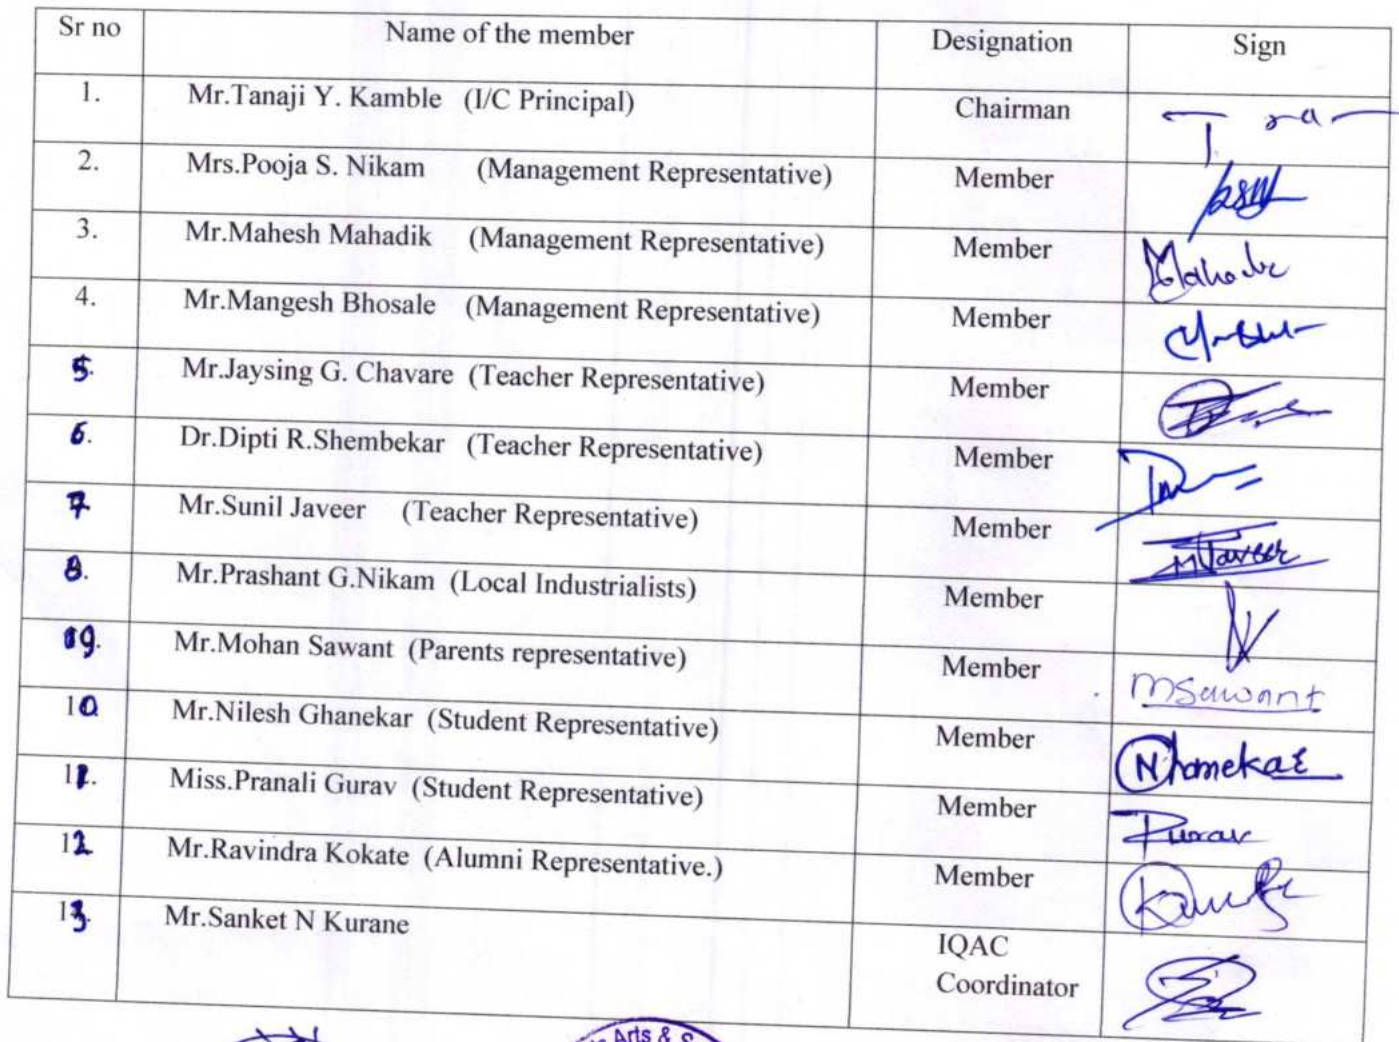 Sr no Name of the member Designation Sign
1. Mr.Tanaji Y. Kamble (I/C Principal) Chairman
2. Mrs.Pooja S. Nikam (Management Representative) Member
3. Mr.Mahesh Mahadik (Management Representative) Member
4. Mr.Mangesh Bhosale (Management Representative) Member
5. Mr.Jaysing G. Chavare (Teacher Representative) Member
6. Dr.Dipti R.Shembekar (Teacher Representative) Member
7 Mr.Sunil Javeer (Teacher Representative) Member
8. Mr.Prashant G.Nikam (Local Industrialists) Member
9. Mr.Mohan Sawant (Parents representative) Member MSawant
10 Mr.Nilesh Ghanekar (Student Representative) Member
11. Miss.Pranali Gurav (Student Representative) Member
12 Mr.Ravindra Kokate (Alumni Representative.) Member
13. Mr.Sanket N Kurane IQAC
Coordinator
Arts &